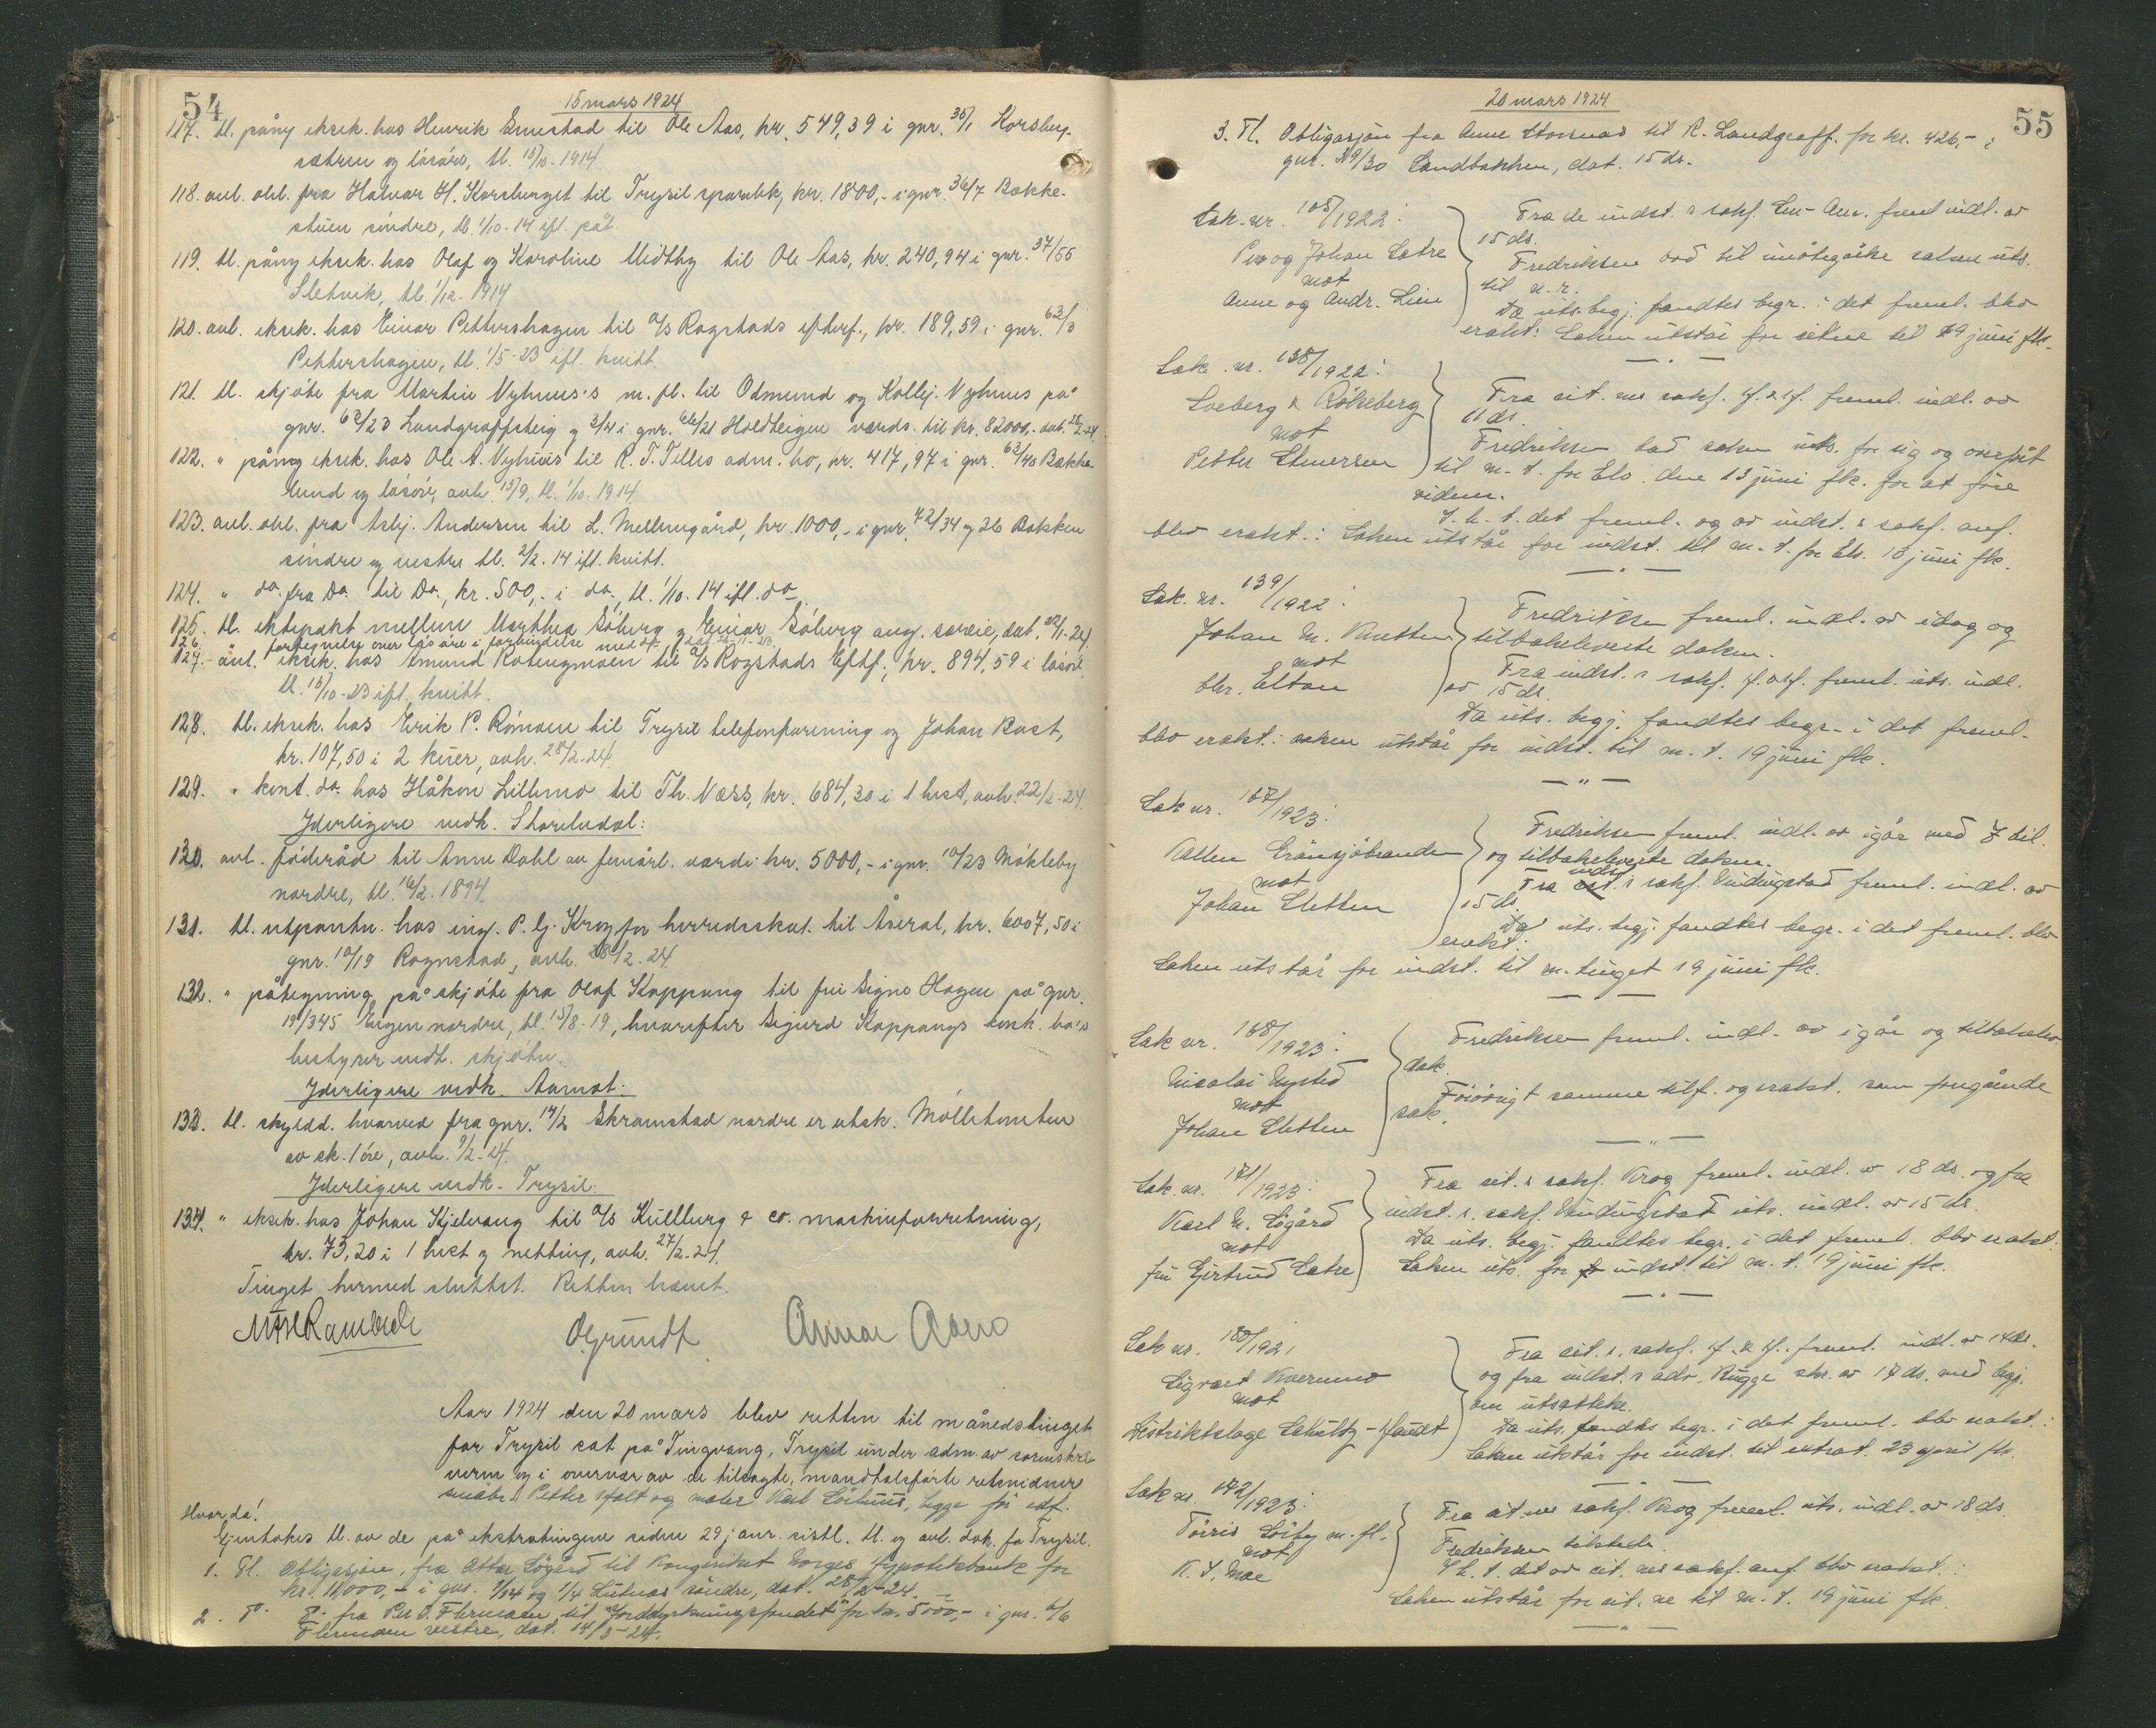 54
15 mars 1924
117. tl. påny eksek. hos Henrik Ernestad til Ole Aas, kr. 549,39 i gnr. 35/1 Horsberg-
sætren og løsøre, tl. 15/10-1914.
118. avl. obl. fra Halvar H. Korsberget til Trysil sparebk, kr. 1800,- i gnr. 36/7 Bække-
stuen søndre, tl. 1/10-14 ifl. påt.
119. tl. påny eksek. hos Olaf og Karoline Midtby til Ole Aas, kr. 240,94 i gnr. 37/55
Sletvik, tl. 1/12-1914
120. avl. eksek. hos Einar Pettershagen til A/S Rogstads efterf., kr. 189,59 i gnr. 62/3
Pettershagen, tl. 1/5-23 ifl. kvitt.
121. tl. skjøte fra Martin Nyhuus's m. fl. til Odmund og Kolbj. Nyhuus på
gnr. 63/23 Landgraffsteig og 2/4 i gnr. 64/21 Holdteigen værds. til kr. 82000,- dat. 28/2-24.
122. " påny eksek. hos Ole A. Nyhuus til R. T. Telles adm. bo, kr. 417,97 i gnr. 63/40 Bække-
lund og løsøre, avh. 15/9, tl. 1/10-1914
123. avl. obl. fra Asbj. Andersen til L. Mellemgård, kr. 1000,- i gnr. 42/34 og 26 Bakken
søndre og vestre tl. 2/2-14 ifl. kvitt.
124. " do. fra Do. til Do., kr. 500,- i do., tl. 1/10-14 ifl. do.
125. tl. ektepakt mellem Marthea Søberg og Einar Søberg ang. særeie, dat. 22/1-24.
126. fortegnelse over løsøre i forbindelse med
127. avl. eksek. hos Amund Rotengmoen til A/S Rogstads Eftf., kr. 894,59 i løsøre,
tl. 15/10-23 ifl. kvitt.
128. tl. eksek. hos Erik P. Rømoen til Trysil telefonforening og Johan Rast,
kr. 107,50 i 2 kuer, avh. 28/2-24.
129. " kont. do. hos Håkon Lillemo til Th. Næss, kr. 684,30 i 1 hest, avh. 22/2-24.
Yderligere vedk. Storelvdal:
130. avl. føderåd til Anne Dahl av femårl. værdi kr. 5000,- i gnr. 10/23 Møkleby
nordre, tl. 16/2-1894.
131. tl. utpantn. hos ing. P. G. Krog for herredsskat til Åseral, kr. 6007,50 i
gnr. 10/19 Rognstad, avh. 28/2-24.
132. " påtegning på skjøte fra Olaf Koppang til fru Signe Hagen på gnr.
19/345 Engen nordre, tl. 15/8-19, hvorefter Sigurd Koppangs konk. bo's
bestyrer vedt. skjøtn.
Yderligere vedk. Aamot:
133. tl. skyldd. hvorved fra gnr. 14/2 Skramstad nordre er utsk. Mølletomten
av sk. 1 øre, avh. 9/2-24.
Yderligere vedk. Trysil:
134. " eksek. hos Johan Kjelvang til A/S Kullberg & co. maskinforretning,
kr. 73,20 i 1 hest og netting, avh. 27/2-24.
Tinget hermed sluttet. Retten hævet.
O. Grundt. Annar Aaeno
Aar 1924 den 20 mars blev retten til månedstinget
for Trysil sat på Tingvang, Trysil under adm. av sorenskri-
veren og i overvær av de tilsagte, mandtalsførte retsvidner
småbr. Petter Holt og maler Karl Løshuus, begge før edf.
Hvor da!
Gjentokes tl. av de på ekstratingene siden 29 janr. sistl. tl. og avl. dok. fa Trysil.
1. Tl. Obligasjon, fra Ottar Søgård til Kongeriket Norges Hypotekbank for
kr. 11000,- i gnr. 1/14 og 1/4 Lutnæs søndre, dat. 28/2-24.
2. Do. Do. fra Per O. Flermoen til "Jorddyrkningsfondet" for kr. 5000,- i gnr. 6/6
Flermoen vestre, dat. 14/3-24.
55
20 mars 1924.
3. Tl. Obligasjon fra Anne Storsnæs til R. Landgraff. for kr. 426,- i
gnr. 29/30 Sandbakken, dat. 15 ds.
Sak nr. 105/1922:
Per og Johan Sætre
mot
Anne og Andr. Lien
Fra de indst. s sakf. Lu-Au. freml indl. av
15 ds.
Fredriksen bad til imøtegåelse saken uts.
til n. r.
Da uts. begj. fandtes begr. i det freml. blev
erakt: Saken utstår for citne til 19 juni fk.
Sak. nr. 138/1922:
Soeberg & Rökeberg
mot
Petter Stenersen
Fra cit. nes sakf. H. & H. freml. indl. av
11 ds.
Fredriksen bad saken uts. for sig og oversat
til m. t. for Elv. den 13 juni fk. for at føre
vidner.
I h. t. det freml. og av indst. s sakf. anf.
blev erakt.: Saken utstår for indst. til m. t. for Elv. 13 juni fk.
Sak. nr. 139/1922:
Johan M. Knetten
mot
Chr. Elton
Fredriksen freml. indl. av idag og
tilbakeleverte doken.
Fra indst. s sakf. H. & H. freml. uts. indl.
av 15 ds.
Da uts. begj. fandtes begr. i det freml.
blev erakt: saken utstår for indst. til m. t. 19 juni fk.
Sak nr. 167/1923:
Kallen Grönsjöbranden
mot
Johan Sletten
Fredriksen freml. indl. av igår med 7 bil.
og tilbakeleverte doken.
Fra indst. s sakf. Vindingstad freml. indl. av
15 ds.
Da uts. begj. fandtes begr. i det freml. blev
erakt:
Saken utstår for indst. til m. tinget 19 juni fk.
Sak nr. 168/1923:
Nicolai Nysted
mot
Johan Sletten
Fredriksen freml. indl. av igår og tilbakelev.
dok.
Forøvrigt samme tilf. og erakt. som foregående
sak.
Sak. nr. 171/1923:
Karl N. Søgård
mot
fru Gjertrud Sætre
Fra cit. s sakf. Krog freml. indl. av 18 ds. og fra
indst. s. sakf. Vindingstad uts. indl. av 15 ds.
Da uts. begj. fandtes begr. i det freml. blev erakt:
Saken uts. for indst. til m. t. 19 juni fk.
Sak nr. 180/1921
Sigvart Kvernmo
mot
Distriktslæge Schultz-Haudt
Fra cit. s. sakf. H. & H. freml. indl. av 14 ds.
og fra indst. s adv. Rugge skr. av 17 ds. med begj.
om utsættelse.
Da uts. fandtes begr. i det freml. blev erakt.:
Saken utstår for indst. til extrat. 23 april fk.
Sak nr. 172/1923:
Töiris Löiby m. fl.
mot
K. T. Moe
Fra cit. ne sakf. Krog freml. uts. indl. av 18 ds.
Fredriksen tilstede.
I h. t. det av cit. nes sakf. anf. blev erakt.:
Saken utstår for cit. ne til m. t. 19 juni fk.